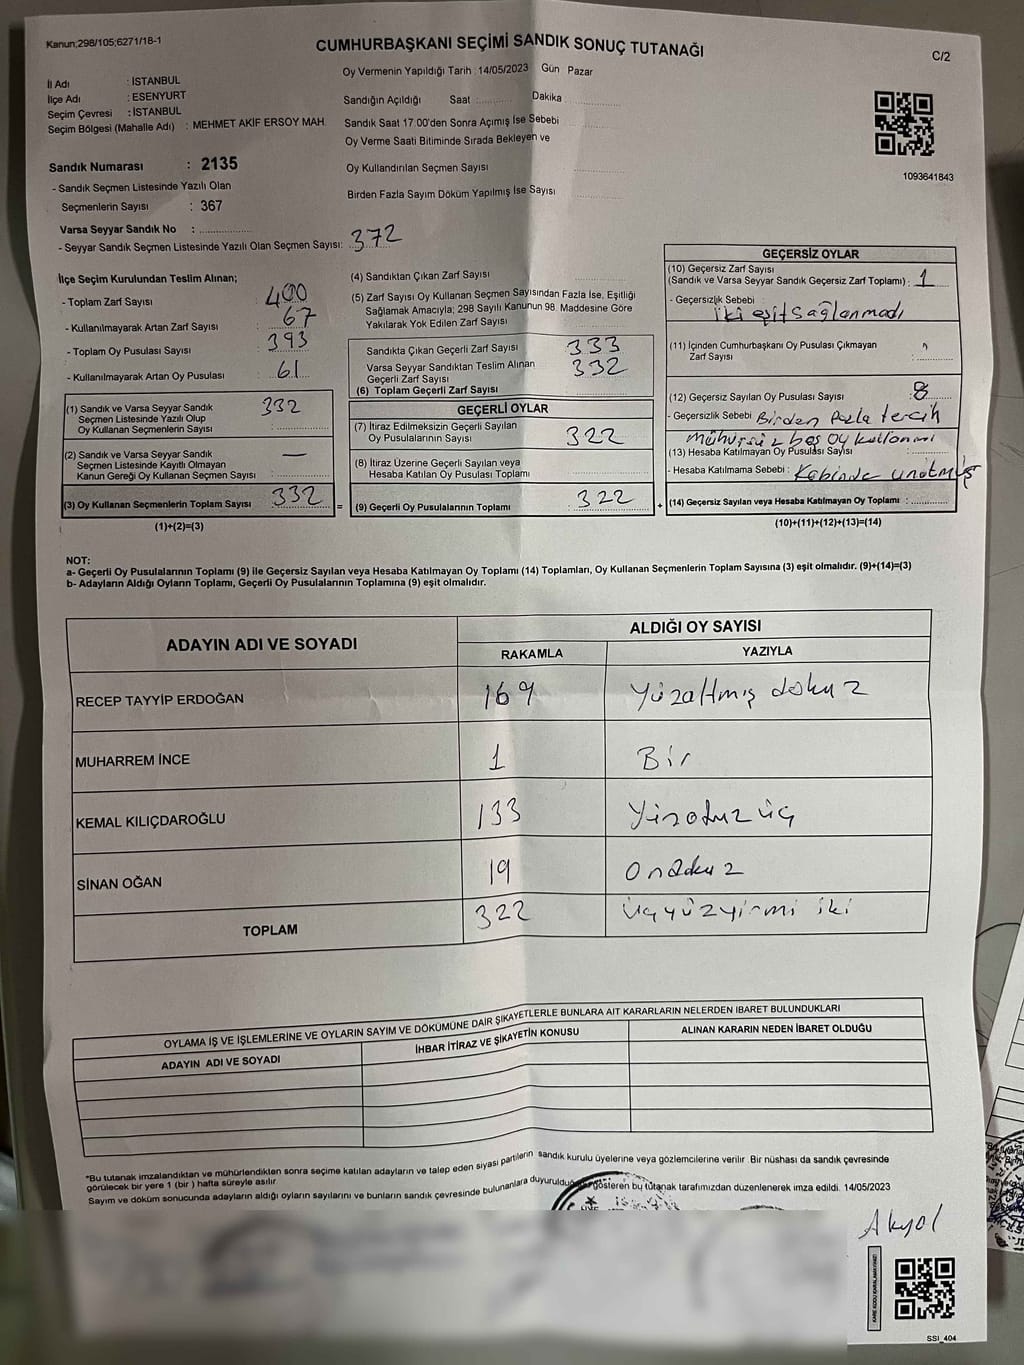 Kanun;298/105;6271/18-1
CUMHURBAŞKANI SEÇİMİ SANDIK SONUÇ TUTANAĞI
C/2
İl Adı : İSTANBUL
İlçe Adı : ESENYURT
Seçim Çevresi : İSTANBUL
Seçim Bölgesi (Mahalle Adı) : MEHMET AKİF ERSOY MAH.
Sandık Numarası : 2135
- Sandık Seçmen Listesinde Yazılı Olan
Seçmenlerin Sayısı : 367
Varsa Seyyar Sandık No :
- Seyyar Sandık Seçmen Listesinde Yazılı Olan Seçmen Sayısı: 372
Oy Vermenin Yapıldığı Tarih : 14/05/2023 Gün Pazar
Sandığın Açıldığı Saat :.......... Dakika
Sandık Saat 17:00'den Sonra Açımış İse Sebebi
Oy Verme Saati Bitiminde Sırada Bekleyen ve
Oy Kullandırılan Seçmen Sayısı
Birden Fazla Sayım Döküm Yapılmış İse Sayısı
1093641843
İlçe Seçim Kurulundan Teslim Alınan;
- Toplam Zarf Sayısı : 400
- Kullanılmayarak Artan Zarf Sayısı : 67
- Toplam Oy Pusulası Sayısı : 393
- Kullanılmayarak Artan Oy Pusulası : 61
(1) Sandık ve Varsa Seyyar Sandık
Seçmen Listesinde Yazılı Olup
Oy Kullanan Seçmenlerin Sayısı : 332
(2) Sandık ve Varsa Seyyar Sandık
Seçmen Listesinde Kayıtlı Olmayan
Kanun Gereği Oy Kullanan Seçmen Sayısı : —
(3) Oy Kullanan Seçmenlerin Toplam Sayısı : 332
(1)+(2)=(3)
(4) Sandıktan Çıkan Zarf Sayısı
(5) Zarf Sayısı Oy Kullanan Seçmen Sayısından Fazla İse, Eşitliği
Sağlamak Amacıyla; 298 Sayılı Kanunun 98. Maddesine Göre
Yakılarak Yok Edilen Zarf Sayısı
Sandıkta Çıkan Geçerli Zarf Sayısı 333
Varsa Seyyar Sandıktan Teslim Alınan 332
Geçerli Zarf Sayısı
(6) Toplam Geçerli Zarf Sayısı
GEÇERLİ OYLAR
(7) İtiraz Edilmeksizin Geçerli Sayılan
Oy Pusulalarının Sayısı : 322
(8) İtiraz Üzerine Geçerli Sayılan veya
Hesaba Katılan Oy Pusulası Toplamı
= (9) Geçerli Oy Pusulalarının Toplamı : 322
GEÇERSİZ OYLAR
(10) Geçersiz Zarf Sayısı
(Sandık ve Varsa Seyyar Sandık Geçersiz Zarf Toplamı) : 1
- Geçersizlik Sebebi :
iki eşit sağlanmadı
(11) İçinden Cumhurbaşkanı Oy Pusulası Çıkmayan
Zarf Sayısı :
(12) Geçersiz Sayılan Oy Pusulası Sayısı : 8
- Geçersizlik Sebebi Birden fazla tercih
Mühürsüz boş oy kullanmı
(13) Hesaba Katılmayan Oy Pusulası Sayısı :
- Hesaba Katılmama Sebebi : Kabinde unutmuş
+ (14) Geçersiz Sayılan veya Hesaba Katılmayan Oy Toplamı :
(10)+(11)+(12)+(13)=(14)
NOT:
a- Geçerli Oy Pusulalarının Toplamı (9) ile Geçersiz Sayılan veya Hesaba Katılmayan Oy Toplamı (14) Toplamları, Oy Kullanan Seçmenlerin Toplam Sayısına (3) eşit olmalıdır. (9)+(14)=(3)
b- Adayların Aldığı Oyların Toplamı, Geçerli Oy Pusulalarının Toplamına (9) eşit olmalıdır.
ADAYIN ADI VE SOYADI
ALDIĞI OY SAYISI
RAKAMLA YAZIYLA
RECEP TAYYİP ERDOĞAN 169 Yüzaltmış dokuz
MUHARREM İNCE 1 Bir
KEMAL KILIÇDAROĞLU 133 Yüzotuzüç
SİNAN OĞAN 19 Ondokuz
TOPLAM 322 Üçyüzyirmi iki
OYLAMA İŞ VE İŞLEMLERİNE VE OYLARIN SAYIM VE DÖKÜMÜNE DAİR ŞİKAYETLERLE BUNLARA AİT KARARLARIN NELERDEN IBARET BULUNDUKLARI
ADAYIN ADI VE SOYADI İHBAR İTİRAZ VE ŞİKAYETİN KONUSU ALINAN KARARIN NEDEN İBARET OLDUĞU
*Bu tutanak imzalandıktan ve mühürlendikten sonra seçime katılan adayların ve talep eden siyasi partilerin sandık kurulu üyelerine veya gözlemcilerine verilir. Bir nüshası da sandık çevresinde
görülecek bir yere 1 (bir ) hafta süreyle asılır.
Sayım ve döküm sonucunda adayların aldığı oyların sayılarını ve bunların sandık çevresinde bulunanlara duyurulduğu gösteren bu tutanak tarafımızdan düzenlenerek imza edildi. 14/05/2023
Akyol
SSI_404